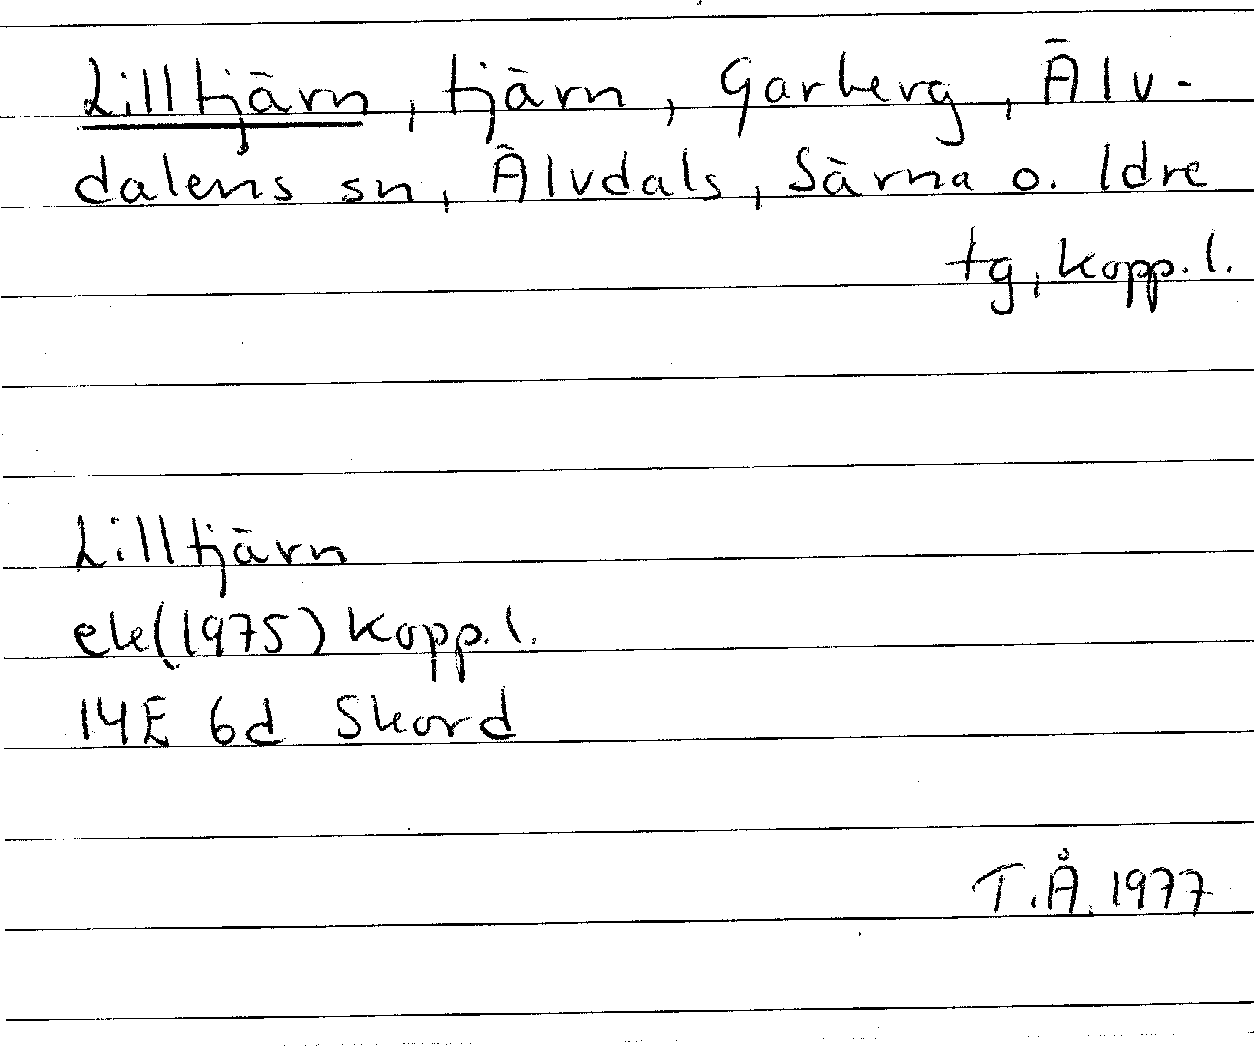 Lilltjärn, tjärn, Garberg, Älv-
dalens sn, Älvdals, Särna o. Idre
tg, Kopp. l.
Lilltjärn
ek (1975) Kopp. l.
14E 6d Skord
T.Å. 1977